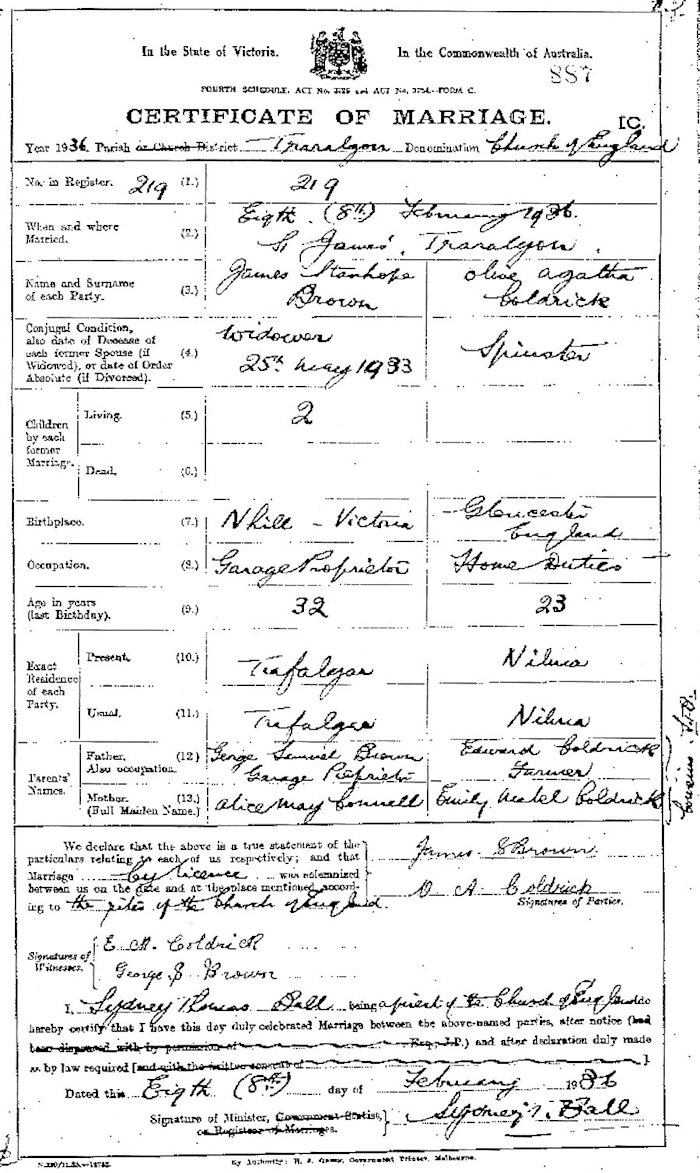 In the State of Victoria. In the Commonwealth of Australia.
887
FOURTH SCHEDULE, ACT No. 3726 and ACT No. 3754.-FORM C.
CERTIFICATE OF MARRIAGE. [C.
Year 1936. Parish or Church District Traralgon Denomination Church of England
No. in Register. 219 (1.) 219
When and where Married. (2.) Eigth (8th) February 1936.
St James', Traralgon.
Name and Surname of each Party. (3.) James Stanhope Brown Olive Agatha Coldrick
Conjugal Condition, also date of Decease of each former Spouse (if Widowed), or date of Order Absolute (if Divorced). (4.) Widower 25th May 1933 Spinster
Children by each former Marriage. Living. (5.) 2
Dead. (6.)
Birthplace. (7.) Nhill - Victoria Gloucester England
Occupation. (8.) Garage Proprietor Home Duties
Age in years (last Birthday). (9.) 32 23
Exact Residence of each Party. Present. (10.) Trafalgar Nilma
Usual. (11.) Trafalgar Nilma
Parents' Names. Father. Also occupation. (12) George Samuel Brown Garage Proprietor Edward Coldrick Farmer
Mother. (Full Maiden Name.) (13.) Alice May Connell Emily Coldrick
We declare that the above is a true statement of the
particulars relating to each of us respectively; and that James S Brown
Marriage by licence was solemnized
between us on the date and at the place mentioned accord- O. A. Coldrick
ing to the rites of the Church of England. Signatures of Parties.
Signatures of Witnesses. E M. Coldrick
George S Brown
I, Sydney Thomas Ball being a priest of the Church of England do
hereby certify that I have this day duly celebrated Marriage between the above-named parties, after notice (had
been dispensed with by permission of Esq., J.P.) and after declaration duly made
as by law required [and with the written consent of ]
Dated this Eigth (8th) day of February 1936
Signature of Minister, Government Statist, or Registrar of Marriages. Sydney T. Ball
By Authority: H. J. Green, Government Printer, Melbourne.